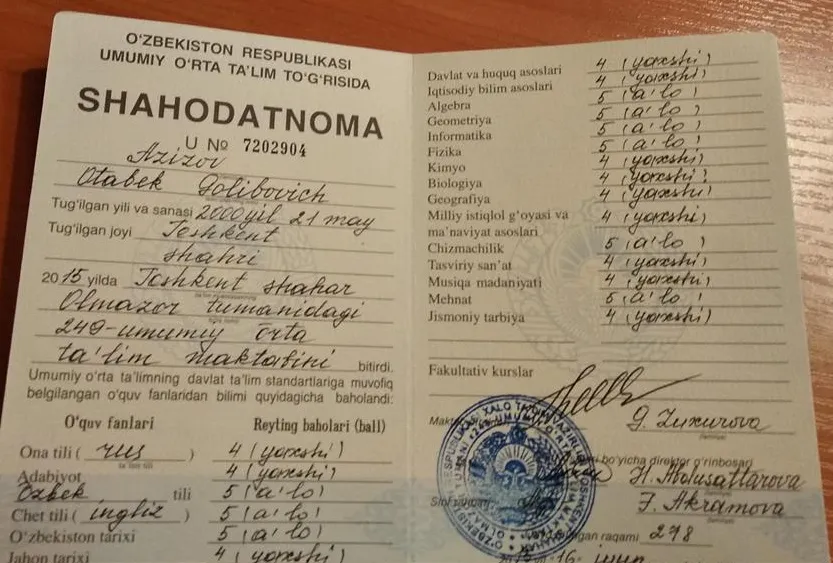 O‘ZBEKISTON RESPUBLIKASI
UMUMIY O‘RTA TA’LIM TO‘G‘RISIDA
SHAHODATNOMA
U № 7202904
Azizov
Otabek Golibovich
Tug‘ilgan yili va sanasi 2000 yil 21 may
Tug‘ilgan joyi Toshkent
shahri
2015 yilda Toshkent shahar
Olmazor tumanidagi
249-umumiy o‘rta
ta’lim maktabini bitirdi.
Umumiy o‘rta ta’limning davlat ta’lim standartlariga muvofiq
belgilangan o‘quv fanlaridan bilimi quyidagicha baholandi:
O‘quv fanlari Reyting baholari (ball)
Ona tili ( rus ) 4 (yaxshi)
Adabiyot 4 (yaxshi)
Özbek tili 5 (a’lo)
Chet tili ( ingliz ) 5 (a’lo)
O‘zbekiston tarixi 5 (a’lo)
Jahon tarixi 4 (yaxshi)
Davlat va huquq asoslari 4 (yaxshi)
Iqtisodiy bilim asoslari 4 (yaxshi)
Algebra 5 (a’lo)
Geometriya 5 (a’lo)
Informatika 5 (a’lo)
Fizika 5 (a’lo)
Kimyo 4 (yaxshi)
Biologiya 4 (yaxshi)
Geografiya 4 (yaxshi)
Milliy istiqlol g‘oyasi va
ma’naviyat asoslari 4 (yaxshi)
Chizmachilik 5 (a’lo)
Tasviriy san’at 4 (yaxshi)
Musiqa madaniyati 4 (yaxshi)
Mehnat 5 (a’lo)
Jismoniy tarbiya 4 (yaxshi)
Fakultativ kurslar
G. Zuxurova
bo‘yicha direktor o‘rinbosari
H. Abdusattarova
F. Akramova
raqami 278
16 iyun